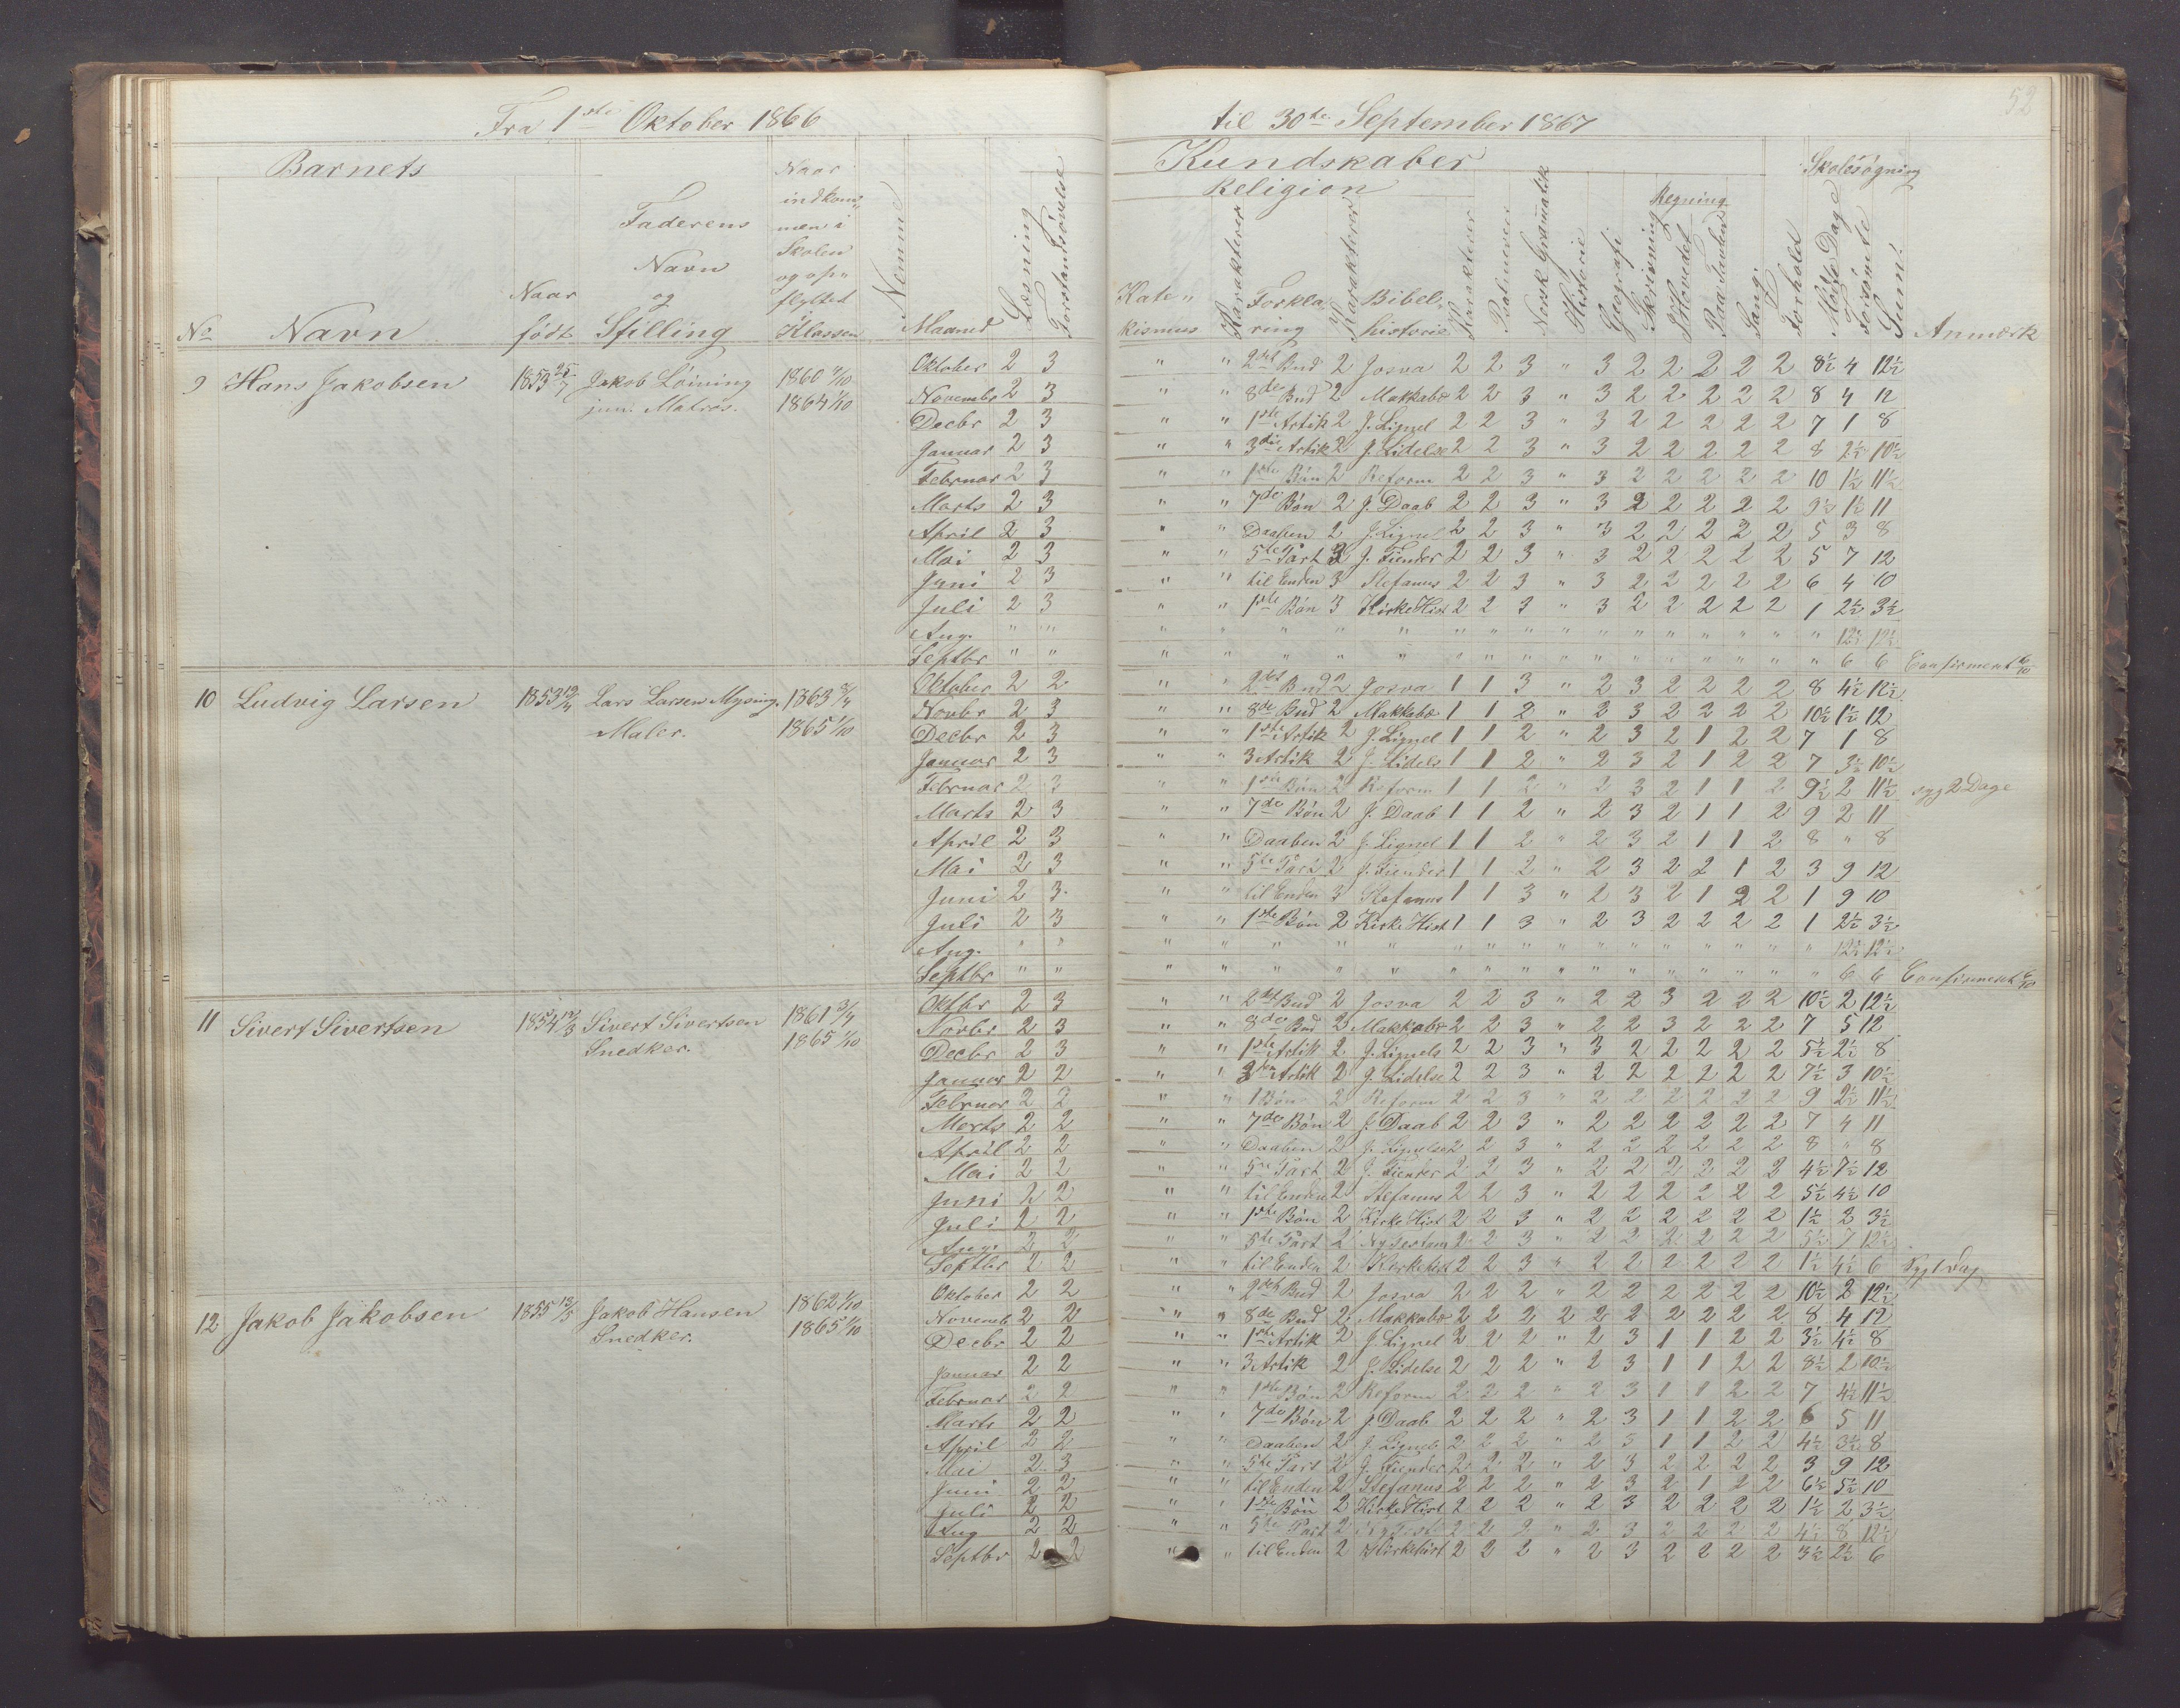 Fra 1ste Oktober 1866 til 30te September 1867
52
Barnets Kundskaber Skolesøgning
Religion Regning
No Navn Naar født Faderens Navn og Stilling Naar indkommen i Skolen og opflyttet i Klassen Nemme Maaned Læsning Forstandsøvelse Katekismus Karakterer Forklaring Karakterer Bibelhistorie Karakterer Psalmevers Norsk Gramatik Historie Geografi Skrivning I Hovedet Paa Tavlen Sang Forhold Mødte Dage Forsømte Sum Anmærk
9 Hans Jakobsen 1853 25/7 Jakob Løining jun. Matros. 1860 1864 1/10
Oktober 2 3 " " 2det Bud 2 Josva 2 2 3 " 3 2 2 2 2 2 8½ 4 12½
Novembr 2 3 " " 8de Bud 2 Makkabæ 2 2 3 " 3 2 2 2 2 2 8 4 12
Decbr 2 3 " " 1ste Artik 2 J. Lignel 2 2 3 " 3 2 2 2 2 2 7 1 8
Januar 2 3 " " 3die Artik 2 J. Lidelse 2 2 3 " 3 2 2 2 2 2 8 2½ 10½
Februar 2 3 " " 1ste Bøn 2 Reform 2 2 3 " 3 2 2 2 2 2 10 1½ 11½
Marts 2 3 " " 7de Bøn 2 J. Daab 2 2 3 " 3 2 2 2 2 2 9½ 1½ 11
April 2 3 " " Daaben 2 J. Lignel 2 2 3 " 3 2 2 2 2 2 5 3 8
Mai 2 3 " " 5te Part 3 J. Fiender 2 2 3 " 3 2 2 2 2 2 5 7 12
Juni 2 3 " " til Enden 3 Stefanus 2 2 3 " 3 2 2 2 2 2 6 4 10
Juli 2 3 " " 1ste Bøn 3 Kirke Hist 2 2 3 " 3 2 2 2 2 2 1 2½ 3½
Aug. " " " " " " " " " " " " " " " " " " 12½ 12½
Septbr " " " " " " " " " " " " " " " " " " 6 6 Confirmert 6/10
10 Ludvig Larsen 1853 Lars Larsen Mysing. Maler. 1863 1865 1/10
Oktober 2 2 " " 2det Bud 2 Josva 1 1 3 " 2 3 2 2 2 2 8 4½ 12½
Novbr 2 3 " " 8de Bud 2 Makkabæ 1 1 2 " 2 3 2 2 2 2 10½ 1½ 12
Decbr 2 3 " " 1ste Artik 2 J. Lignel 1 1 2 " 2 3 2 1 2 2 7 1 8
Januar 2 3 " " 3 Artik 2 J. Lidels 1 1 2 " 2 3 2 1 2 2 7 3½ 10½
Februar 2 3 " " 1ste Bøn 2 Reform 1 1 2 " 2 3 2 1 1 2 9½ 2 11½ syg 2 Dage
Marts 2 3 " " 7de Bøn 2 J. Daab 1 1 2 " 2 3 2 1 1 2 9 2 11
April 2 3 " " Daaben 2 J. Lignel 1 1 2 " 2 3 2 1 1 2 8 " 8
Mai 2 3 " " 5te Part 2 J. Fiender 1 1 2 " 2 3 2 2 1 2 3 9 12
Juni 2 3 " " til Enden 3 Stefanus 1 1 3 " 2 3 2 1 2 2 1 9 10
Juli 2 3 " " 1ste Bøn 2 Kirke Hist 1 1 3 " 2 3 2 2 2 2 1 2½ 3½
Aug. " " " " " " " " " " " " " " " " " " 12½ 12½
Septbr " " " " " " " " " " " " " " " " " " 6 6 Confirmert 6/10
11 Sivert Sivertsen 1854 Sivert Sivertsen Snedker. 1861 1865 1/10
Oktbr 2 3 " " 2det Bud 2 Josva 2 2 3 " 2 2 3 2 2 2 10½ 2 12½
Novbr 2 3 " " 8de Bud 2 Makkabæ 2 2 3 " 2 2 3 2 2 2 7 5 12
Decbr 2 3 " " 1ste Artik 2 J. Lignels 2 2 3 " 3 2 2 2 2 2 5½ 2½ 8
Januar 2 2 " " 3die Artik 2 J. Lidelse 2 2 3 " 2 2 2 2 2 2 7½ 3 10½
Februar 2 2 " " 1 Bøn 2 Reform 2 2 3 " 2 2 2 2 2 2 9 2½ 11½
Marts 2 2 " " 7de Bøn 2 J. Daab 2 2 3 " 2 2 2 2 2 2 7 4 11
April 2 2 " " Daaben 2 J. Lignelse 2 2 3 " 2 2 2 2 2 2 8 " 8
Mai 2 2 " " 5te Part 2 J. Fiender 2 2 3 " 2 2 2 2 2 2 4½ 7½ 12
Juni 2 2 " " til Enden 2 Stefanus 2 2 3 " 2 2 2 2 2 2 5½ 4½ 10
Juli 2 2 " " 1ste Bøn 2 Kirke Hist 2 2 3 " 2 2 2 2 2 2 1½ 2 3½
Aug. 2 2 " " 5te Part 2 Nytestam 2 2 3 " 2 2 2 2 2 2 5½ 7 12½
Septbr 2 2 " " til Enden 2 Kirkehist 2 2 3 " 2 2 2 2 2 2 1½ 4½ 6 Syg 1 Dag
12 Jakob Jakobsen 1855 13/5 Jakob Hansen Snedker. 1862 1/10 1865 1/10
Oktober 2 2 " " 2det Bud 2 Josva 2 2 2 " 2 2 2 2 2 2 10½ 2 12½
Novemb 2 2 " " 8de Bud 2 Makkabæ 2 2 2 2 2 2 2 2 2 2 8 4 12
Decbr 2 2 " " 1ste Artik 2 J. Lignel 2 2 2 " 2 3 1 1 2 2 3½ 4½ 8
Januar 2 2 " " 3 Artik 2 J. Lidelse 2 2 2 " 2 3 1 1 2 2 8½ 2 10½
Februar 2 2 " " 1ste Bøn 2 Reform 2 2 2 " 2 3 1 1 2 2 7 4½ 11½
Marts 2 2 " " 7de Bøn 2 J. Daab 2 2 2 " 2 3 1 1 2 2 6 5 11
April 2 2 " " Daaben 2 J. Lignels 2 2 2 " 2 3 1 1 2 2 4½ 3½ 8
Mai 2 3 " " 5te Part 2 J. Fiender 2 2 2 " 2 3 2 2 2 2 3 9 12
Juni 2 2 " " til Enden 2 Stefanus 2 2 2 " 2 3 2 1 2 2 6½ 5½ 10
Juli 2 2 " " 1ste Bøn 2 Kirke Hist 2 2 2 " 2 3 2 2 2 2 1½ 2 3½
Aug 2 2 " " 5te Part 2 2 2 2 " 2 3 2 2 2 2 4½ 8 12½
Septbr 2 2 " " til Enden 2 Kirkehist 2 2 2 " 2 3 2 2 2 2 3½ 2½ 6